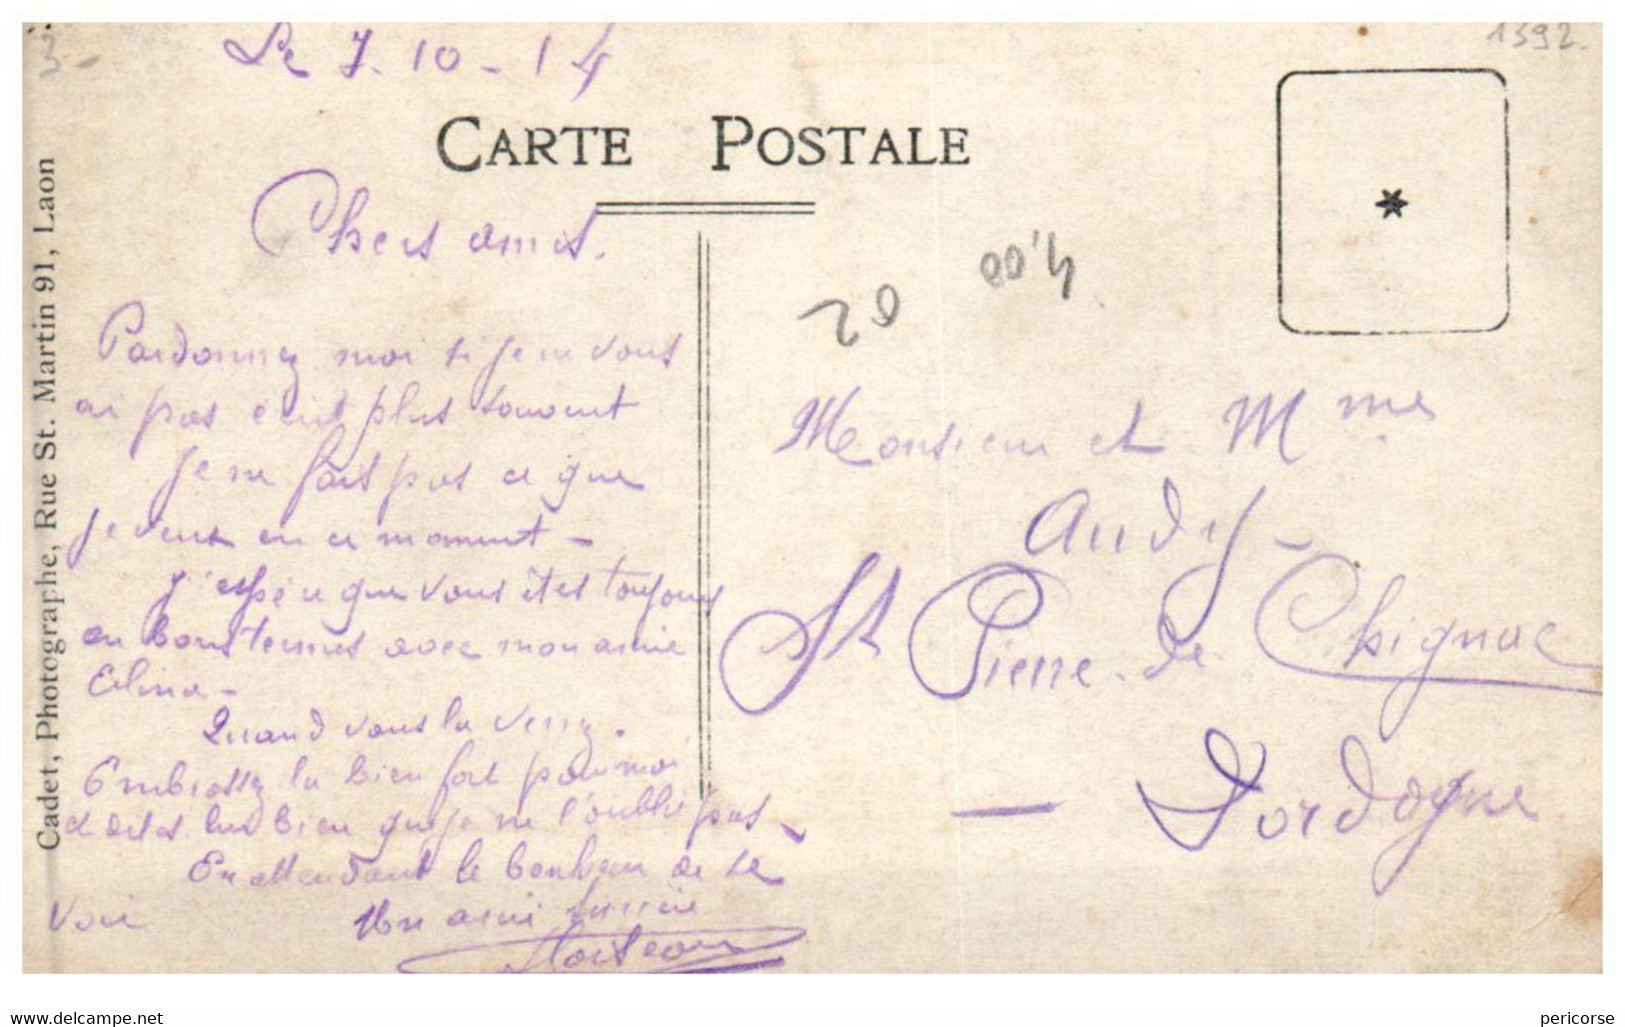 1392.
3-
Le 7.10-14
CARTE POSTALE
Chers amis.
Pardonnez moi si je ne vous
ai pas écrit plus souvent
Je ne fais pas ce que
je veux en ce moment -
J'espère que vous êtes toujours
en bons termes avec mon amie
Elina -
Quand vous la verrez.
Embrassez la bien fort pour moi
et dites lui bien que je ne l'oublie pas -
En attendant le bonheur de se
voir Un ami sincère
20 00'4
Monsieur et Mme
Audy -
St Pierre de Chignac
- Dordogne
Cadet, Photographe, Rue St. Martin 91, Laon
www.delcampe.net
pericorse